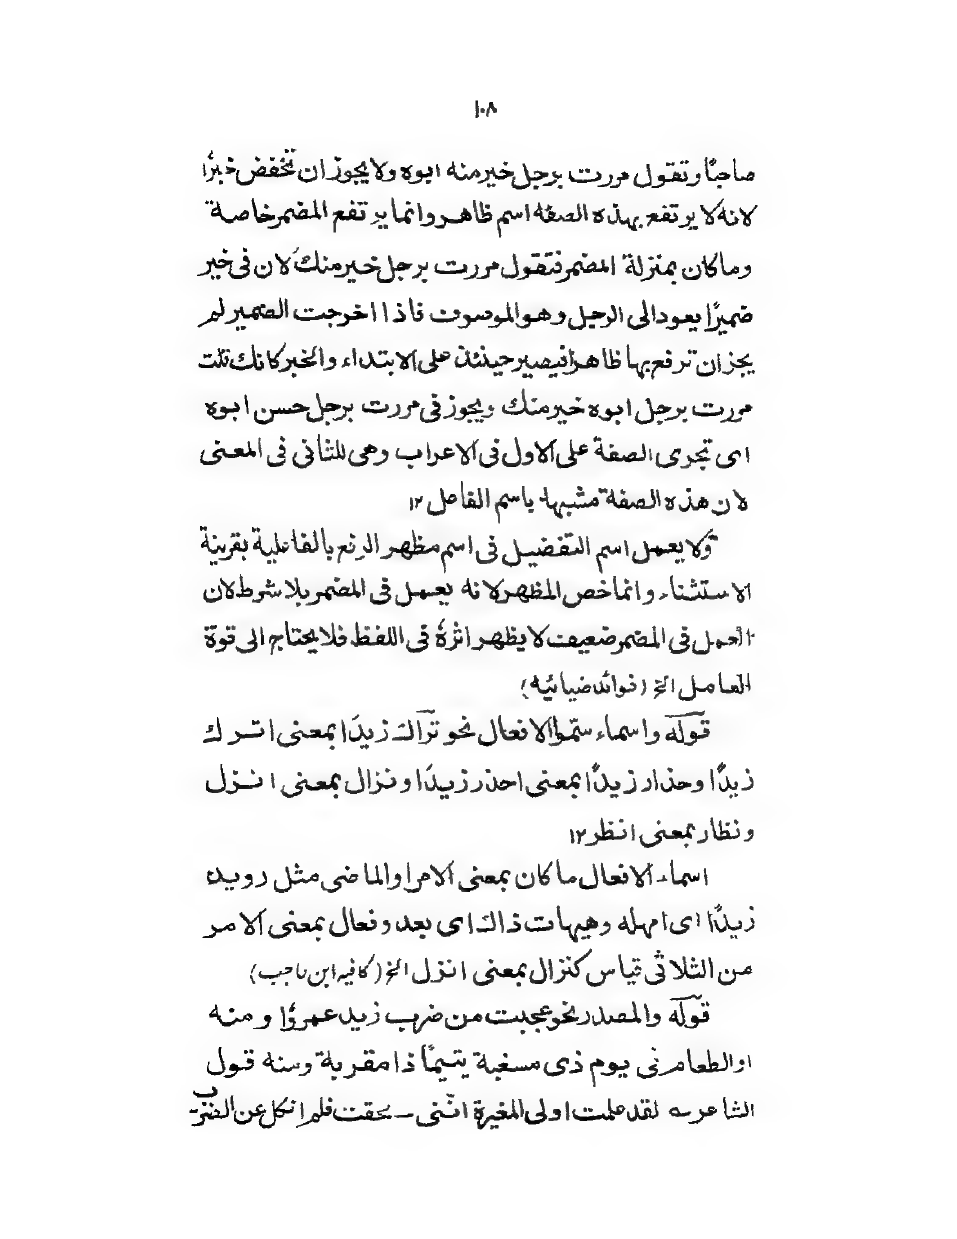 ١٠٨
صاحبًا وتقول مررت برجل خير منه ابوه ولا يجوز ان تخفض خبرًا
لانه لا يرتفع بهذه الصفة اسم ظاهر وانما يرتفع المضمر خاصة
وما كان بمنزلة المضمر فتقول مررت برجل خير منك لان فى خير
ضميرًا يعود الى الرجل وهو الموصوف فاذا اخرجت الضمير لم
يجز ان ترفع بها ظاهرا فيصير حينئذ على الابتداء والخبر كانك قلت
مررت برجل ابوه خير منك ويجوز فى مررت برجل حسن ابوه
اى تجرى الصفة على الاول فى الاعراب وهى للثانى فى المعنى
لان هذه الصفة مشبهة باسم الفاعل ١٢
ولا يعمل اسم التفضيل فى اسم مظهر الرفع بالفاعلية بقرينة
الاستثناء وانما خص المظهر لانه يعمل فى المضمر بلا شرط لان
العمل فى المضمر ضعيف لا يظهر اثره فى اللفظ فلا يحتاج الى قوة
العامل الخ (فوائد ضيائيه)
قوله واسماء سموا الافعال نحو تراك زيدًا بمعنى اترك
زيدًا وحذار زيدًا بمعنى احذر زيدًا ونزال بمعنى انزل
ونظار بمعنى انظر ١٢
اسماء الافعال ما كان بمعنى الامر او الماضى مثل رويد
زيدًا اى امهله وهيهات ذاك اى بعد وفعال بمعنى الامر
من الثلاثى قياس كنزال بمعنى انزل الخ (كافيه ابن حاجب)
قوله والمصدر نحو عجبت من ضرب زيد عمروًا ومنه
او اطعام فى يوم ذى مسغبة يتيمًا ذا مقربة ومنه قول
الشاعر ؎ لقد علمت اولى المغيرة اننى – لحقت فلم انكل عن الضرب